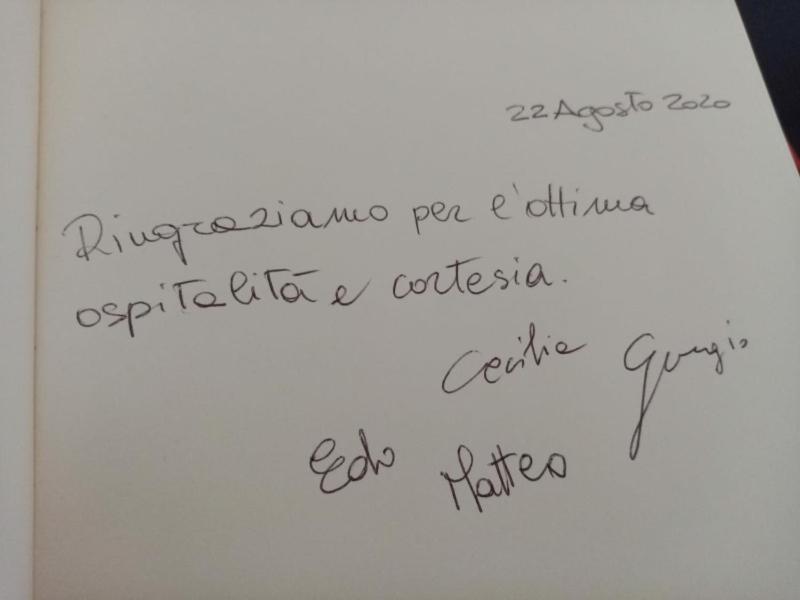 22 Agosto 2020
Ringraziamo per l'ottima
ospitalità e cortesia.
Cecilia Giorgio
Edo Matteo